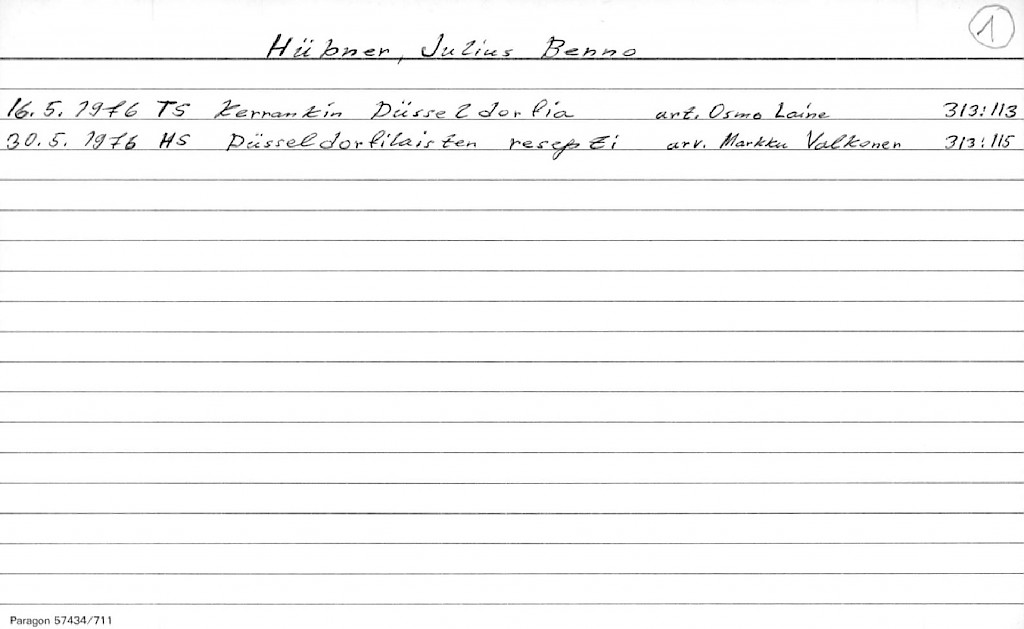 1
Hübner, Julius Benno
16.5.1976 TS Kerrankin Düsseldorfia art. Osmo Laine 313:113
30.5.1976 HS Düsseldorfilaisten resepti arv. Markku Valkonen 313:115
Paragon 57434/711